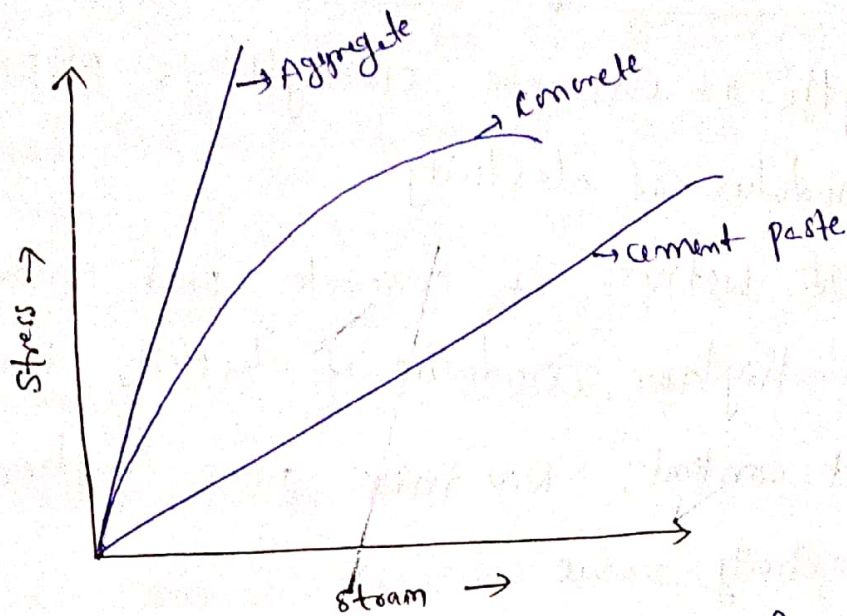 → Aggregate
→ Concrete
→ cement paste
Stress →
strain →